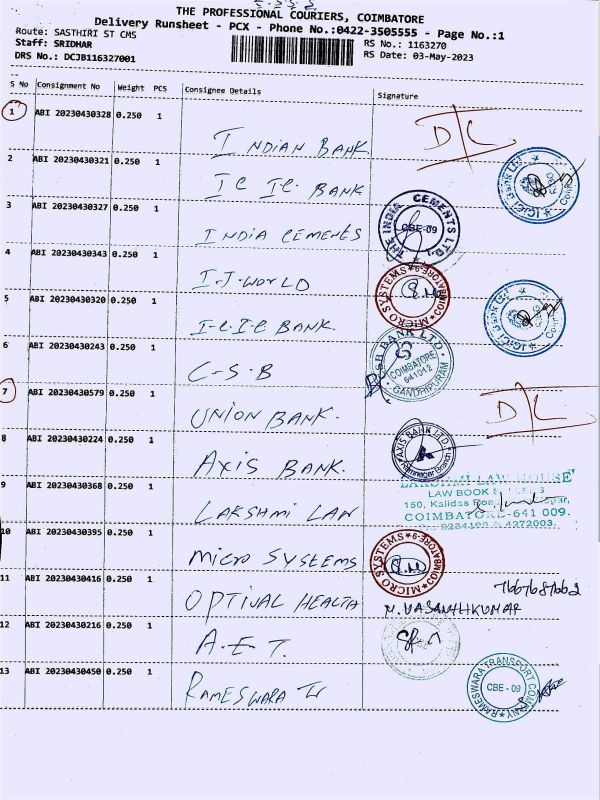 THE PROFESSIONAL COURIERS, COIMBATORE
Delivery Runsheet - PCX - Phone No.:0422-3505555 - Page No.:1
Route: SASTHIRI ST CMS
Staff: SRIDHAR
DRS No.: DCJB116327001
RS No.: 1163270
RS Date: 03-May-2023
S No Consignment No Weight PCS Consignee Details Signature
1 ABI 20230430328 0.250 1 INDIAN BANK D/C
2 ABI 20230430321 0.250 1 IC IC BANK ICICI Bank
3 ABI 20230430327 0.250 1 INDIA CEMENTS THE INDIA CEMENTS LTD. CBE-09
4 ABI 20230430343 0.250 1 I-J-WORLD MICRO SYSTEMS COIMBATORE-9
5 ABI 20230430320 0.250 1 I-C-I-C BANK. ICICI Bank
6 ABI 20230430243 0.250 1 C-S-B CSB BANK LTD. COIMBATORE 641012 GANDHIPURAM
7 ABI 20230430579 0.250 1 UNION BANK. D/C
8 ABI 20230430224 0.250 1 AXIS BANK. AXIS BANK LTD. Ramnagar Branch
9 ABI 20230430368 0.250 1 LAKSHMI LAW
LAKSHMI LAW HOUSE
LAW BOOK
150, Kalidas Road,
COIMBATORE-641 009.
4272003.
10 ABI 20230430395 0.250 1 MICRO SYSTEMS MICRO SYSTEMS COIMBATORE-9
11 ABI 20230430416 0.250 1 OPTIVAL HEALTH M. VASANTHKUMAR
12 ABI 20230430216 0.250 1 A.E.T.
13 ABI 20230430450 0.250 1 RAMESWARA Tr RAMESWARA TRANSPORT COMPANY CBE - 09